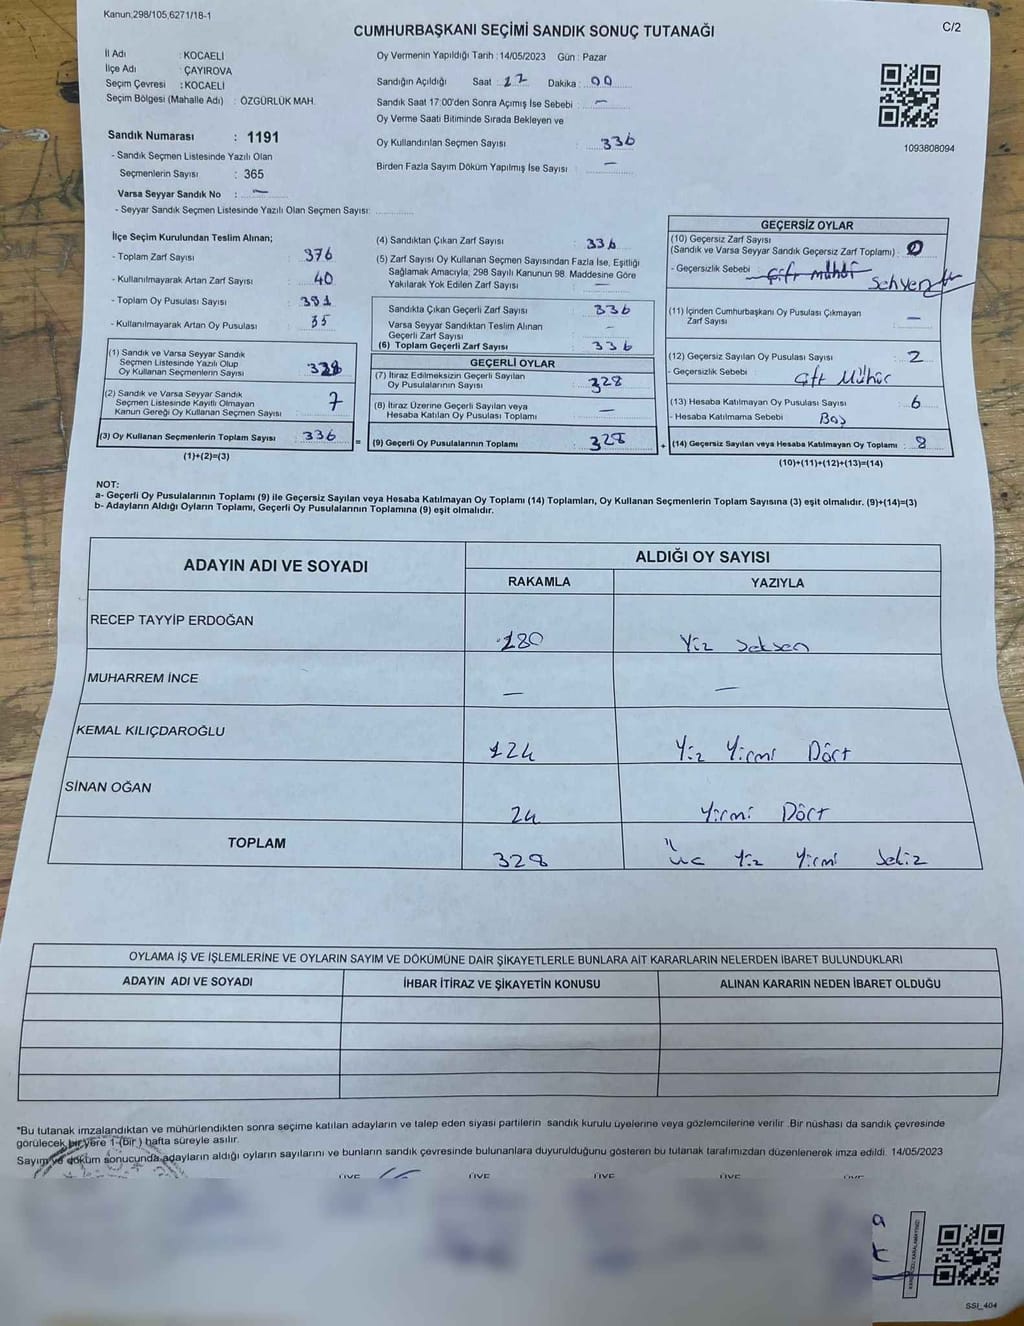 Kanun,298/105,6271/18-1
CUMHURBAŞKANI SEÇİMİ SANDIK SONUÇ TUTANAĞI
C/2
İl Adı : KOCAELİ
İlçe Adı : ÇAYIROVA
Seçim Çevresi : KOCAELİ
Seçim Bölgesi (Mahalle Adı) : ÖZGÜRLÜK MAH.
Sandık Numarası : 1191
- Sandık Seçmen Listesinde Yazılı Olan
Seçmenlerin Sayısı : 365
Varsa Seyyar Sandık No : —
- Seyyar Sandık Seçmen Listesinde Yazılı Olan Seçmen Sayısı:
Oy Vermenin Yapıldığı Tarih : 14/05/2023 Gün : Pazar
Sandığın Açıldığı Saat : 17 Dakika : 00
Sandık Saat 17:00'den Sonra Açımış İse Sebebi : —
Oy Verme Saati Bitiminde Sırada Bekleyen ve
Oy Kullandırılan Seçmen Sayısı : 336
Birden Fazla Sayım Döküm Yapılmış İse Sayısı : —
1093808094
İlçe Seçim Kurulundan Teslim Alınan;
- Toplam Zarf Sayısı : 376
- Kullanılmayarak Artan Zarf Sayısı : 40
- Toplam Oy Pusulası Sayısı : 381
- Kullanılmayarak Artan Oy Pusulası : 35
(1) Sandık ve Varsa Seyyar Sandık
Seçmen Listesinde Yazılı Olup
Oy Kullanan Seçmenlerin Sayısı :
(2) Sandık ve Varsa Seyyar Sandık
Seçmen Listesinde Kayıtlı Olmayan
Kanun Gereği Oy Kullanan Seçmen Sayısı : 7
(3) Oy Kullanan Seçmenlerin Toplam Sayısı : 336
(1)+(2)=(3)
(4) Sandıktan Çıkan Zarf Sayısı : 336
(5) Zarf Sayısı Oy Kullanan Seçmen Sayısından Fazla İse, Eşitliği
Sağlamak Amacıyla, 298 Sayılı Kanunun 98. Maddesine Göre
Yakılarak Yok Edilen Zarf Sayısı : —
Sandıkta Çıkan Geçerli Zarf Sayısı : 336
Varsa Seyyar Sandıktan Teslim Alınan
Geçerli Zarf Sayısı : —
(6) Toplam Geçerli Zarf Sayısı : 336
GEÇERLİ OYLAR
(7) İtiraz Edilmeksizin Geçerli Sayılan
Oy Pusulalarının Sayısı : 328
(8) İtiraz Üzerine Geçerli Sayılan veya
Hesaba Katılan Oy Pusulası Toplamı : —
= (9) Geçerli Oy Pusulalarının Toplamı : 328
GEÇERSİZ OYLAR
(10) Geçersiz Zarf Sayısı
(Sandık ve Varsa Seyyar Sandık Geçersiz Zarf Toplamı) : 0
- Geçersizlik Sebebi : Çift mühür Sehven
(11) İçinden Cumhurbaşkanı Oy Pusulası Çıkmayan
Zarf Sayısı : —
(12) Geçersiz Sayılan Oy Pusulası Sayısı : 2
- Geçersizlik Sebebi : Çift Mühür
(13) Hesaba Katılmayan Oy Pusulası Sayısı : 6
- Hesaba Katılmama Sebebi : Boş
+ (14) Geçersiz Sayılan veya Hesaba Katılmayan Oy Toplamı : 8
(10)+(11)+(12)+(13)=(14)
NOT:
a- Geçerli Oy Pusulalarının Toplamı (9) ile Geçersiz Sayılan veya Hesaba Katılmayan Oy Toplamı (14) Toplamları, Oy Kullanan Seçmenlerin Toplam Sayısına (3) eşit olmalıdır. (9)+(14)=(3)
b- Adayların Aldığı Oyların Toplamı, Geçerli Oy Pusulalarının Toplamına (9) eşit olmalıdır.
ADAYIN ADI VE SOYADI ALDIĞI OY SAYISI
RAKAMLA YAZIYLA
RECEP TAYYİP ERDOĞAN 180 Yüz seksen
MUHARREM İNCE — —
KEMAL KILIÇDAROĞLU 124 Yüz Yirmi Dört
SİNAN OĞAN 24 Yirmi Dört
TOPLAM 328 Üç Yüz Yirmi Sekiz
OYLAMA İŞ VE İŞLEMLERİNE VE OYLARIN SAYIM VE DÖKÜMÜNE DAİR ŞİKAYETLERLE BUNLARA AİT KARARLARIN NELERDEN İBARET BULUNDUKLARI
ADAYIN ADI VE SOYADI İHBAR İTİRAZ VE ŞİKAYETİN KONUSU ALINAN KARARIN NEDEN İBARET OLDUĞU
*Bu tutanak imzalandıktan ve mühürlendikten sonra seçime katılan adayların ve talep eden siyasi partilerin sandık kurulu üyelerine veya gözlemcilerine verilir .Bir nüshası da sandık çevresinde
görülecek bir yere 1 (bir ) hafta süreyle asılır.
Sayım ve döküm sonucunda adayların aldığı oyların sayılarını ve bunların sandık çevresinde bulunanlara duyurulduğunu gösteren bu tutanak tarafımızdan düzenlenerek imza edildi. 14/05/2023
ÜYE ÜYE ÜYE ÜYE ÜYE
SSI_404